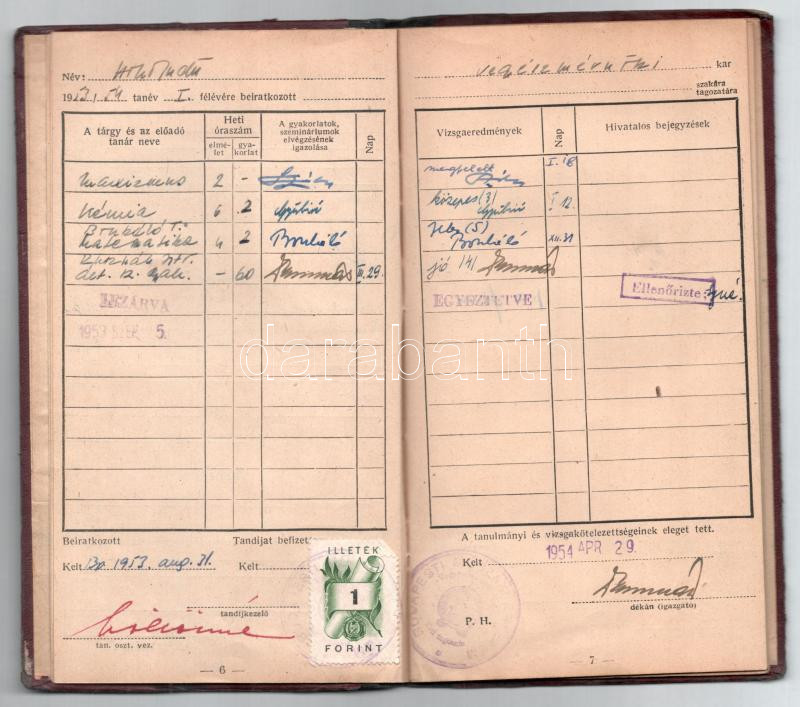 Név:
1953/54 tanév I. félévére beiratkozott
A tárgy és az előadó tanár neve
Heti óraszám
elmélet
gyakorlat
A gyakorlatok, szemináriumok elvégzésének igazolása
Nap
marxizmus 2 -
kémia 6 2
Bonkáló T.:
matematika 4 2 Bonkáló
- 60 III. 29.
LEZÁRVA
1953 SZEP 5.
Beiratkozott
Tandíjat befizet
Kelt Bp. 1953. aug. 31. Kelt
tandíjkezelő
tan. oszt. vez.
ILLETÉK
1
FORINT
— 6 —
vegyészmérnöki kar
szakára
tagozatára
Vizsgaeredmények
Nap
Hivatalos bejegyzések
megfelelt I. 18
közepes (3) I. 12.
jeles (5)
Bonkáló XII. 31
jó (4)
EGYEZTETVE
Ellenőrizte:
A tanulmányi és vizsgakötelezettségeinek eleget tett.
Kelt 1954 APR 29.
dékán (igazgató)
P. H.
— 7 —
darabanth